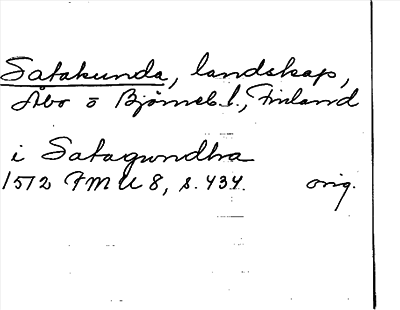 Satakunda, landskap,
Åbo o Björneb. l., Finland
i Satagundha
1572 FMU 8, s. 434. orig.